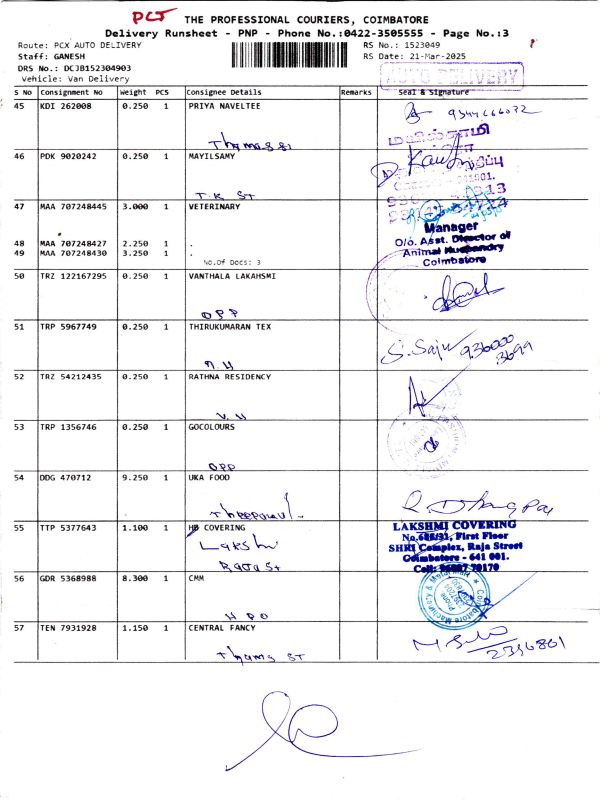 PCJ
THE PROFESSIONAL COURIERS, COIMBATORE
Delivery Runsheet - PNP - Phone No.:0422-3505555 - Page No.:3
Route: PCX AUTO DELIVERY
RS No.: 1523049
Staff: GANESH
RS Date: 21-Mar-2025
DRS No.: DCJB152304903
AUTO DELIVERY
Vehicle: Van Delivery
S No Consignment No Weight PCS Consignee Details Remarks Seal & Signature
45 KDI 262008 0.250 1 PRIYA NAVELTEE
46 PDK 9020242 0.250 1 MAYILSAMY
T.K ST
47 MAA 707248445 3.000 1 VETERINARY
Manager
O/o. Asst. Director of
Animal Husbandry
Coimbatore
48 MAA 707248427 2.250 1 .
49 MAA 707248430 3.250 1 .
No.Of Docs: 3
50 TRZ 122167295 0.250 1 VANTHALA LAKAHSMI
OPP
51 TRP 5967749 0.250 1 THIRUKUMARAN TEX
S. Saju 936000
3699
52 TRZ 54212435 0.250 1 RATHNA RESIDENCY
V.H
53 TRP 1356746 0.250 1 GOCOLOURS
OPP
54 DDG 470712 9.250 1 UKA FOOD
55 TTP 5377643 1.100 1 HB COVERING
Lakshmi
Raja St
LAKSHMI COVERING
First Floor
SHRI Complex, Raja Street
Coimbatore - 641 001.
56 GDR 5368988 8.300 1 CMM
H P O
57 TEN 7931928 1.150 1 CENTRAL FANCY
Thoms ST